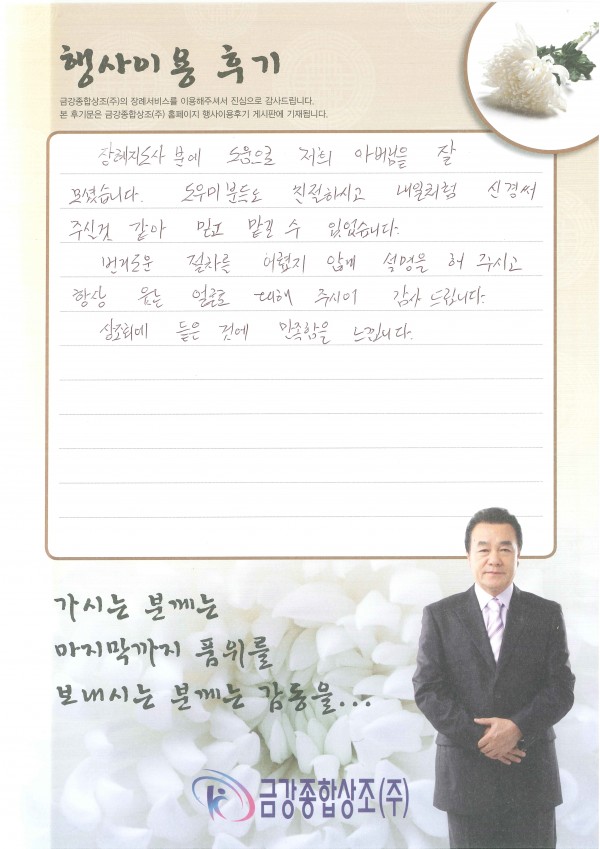 행사이용 후기
금강종합상조(주)의 장례서비스를 이용해주셔서 진심으로 감사드립니다.
본 후기문은 금강종합상조(주) 홈페이지 행사이용후기 게시판에 기재됩니다.
장례지도사 분에 도움으로 저희 아버님을 잘
모셨습니다. 도우미분들도 친절하시고 내일처럼 신경써
주신것 같아 믿고 맡길 수 있었습니다.
번거로운 절차를 어렵지 않게 설명을 해 주시고
항상 웃는 얼굴로 대해 주시어 감사 드립니다.
상조회에 들은 것에 만족함을 느낍니다.
가시는 분께는
마지막까지 품위를
보내시는 분께는 감동을...
금강종합상조(주)